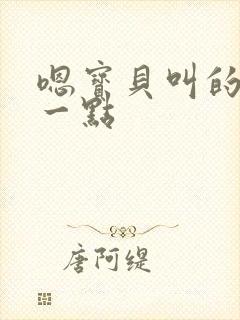 嗯寶貝叫的
一點
唐阿缇